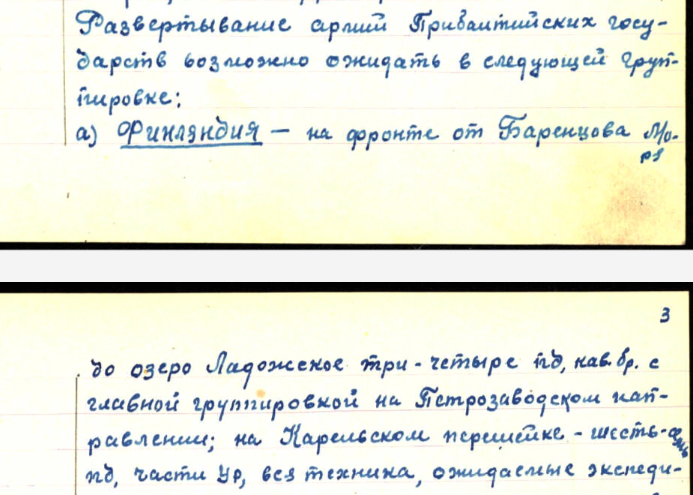 Развертывание армий Прибалтийских госу-
дарств возможно ожидать в следующей груп-
пировке:
а) Финляндия — на фронте от Баренцова Мо-
ря
3
до озеро Ладожское три-четыре пд, кав. бр. с
главной группировкой на Петрозаводском нап-
равлении; на Карельском перешейке - шесть-семь
пд, части УР, вся техника, ожидаемые экспеди-